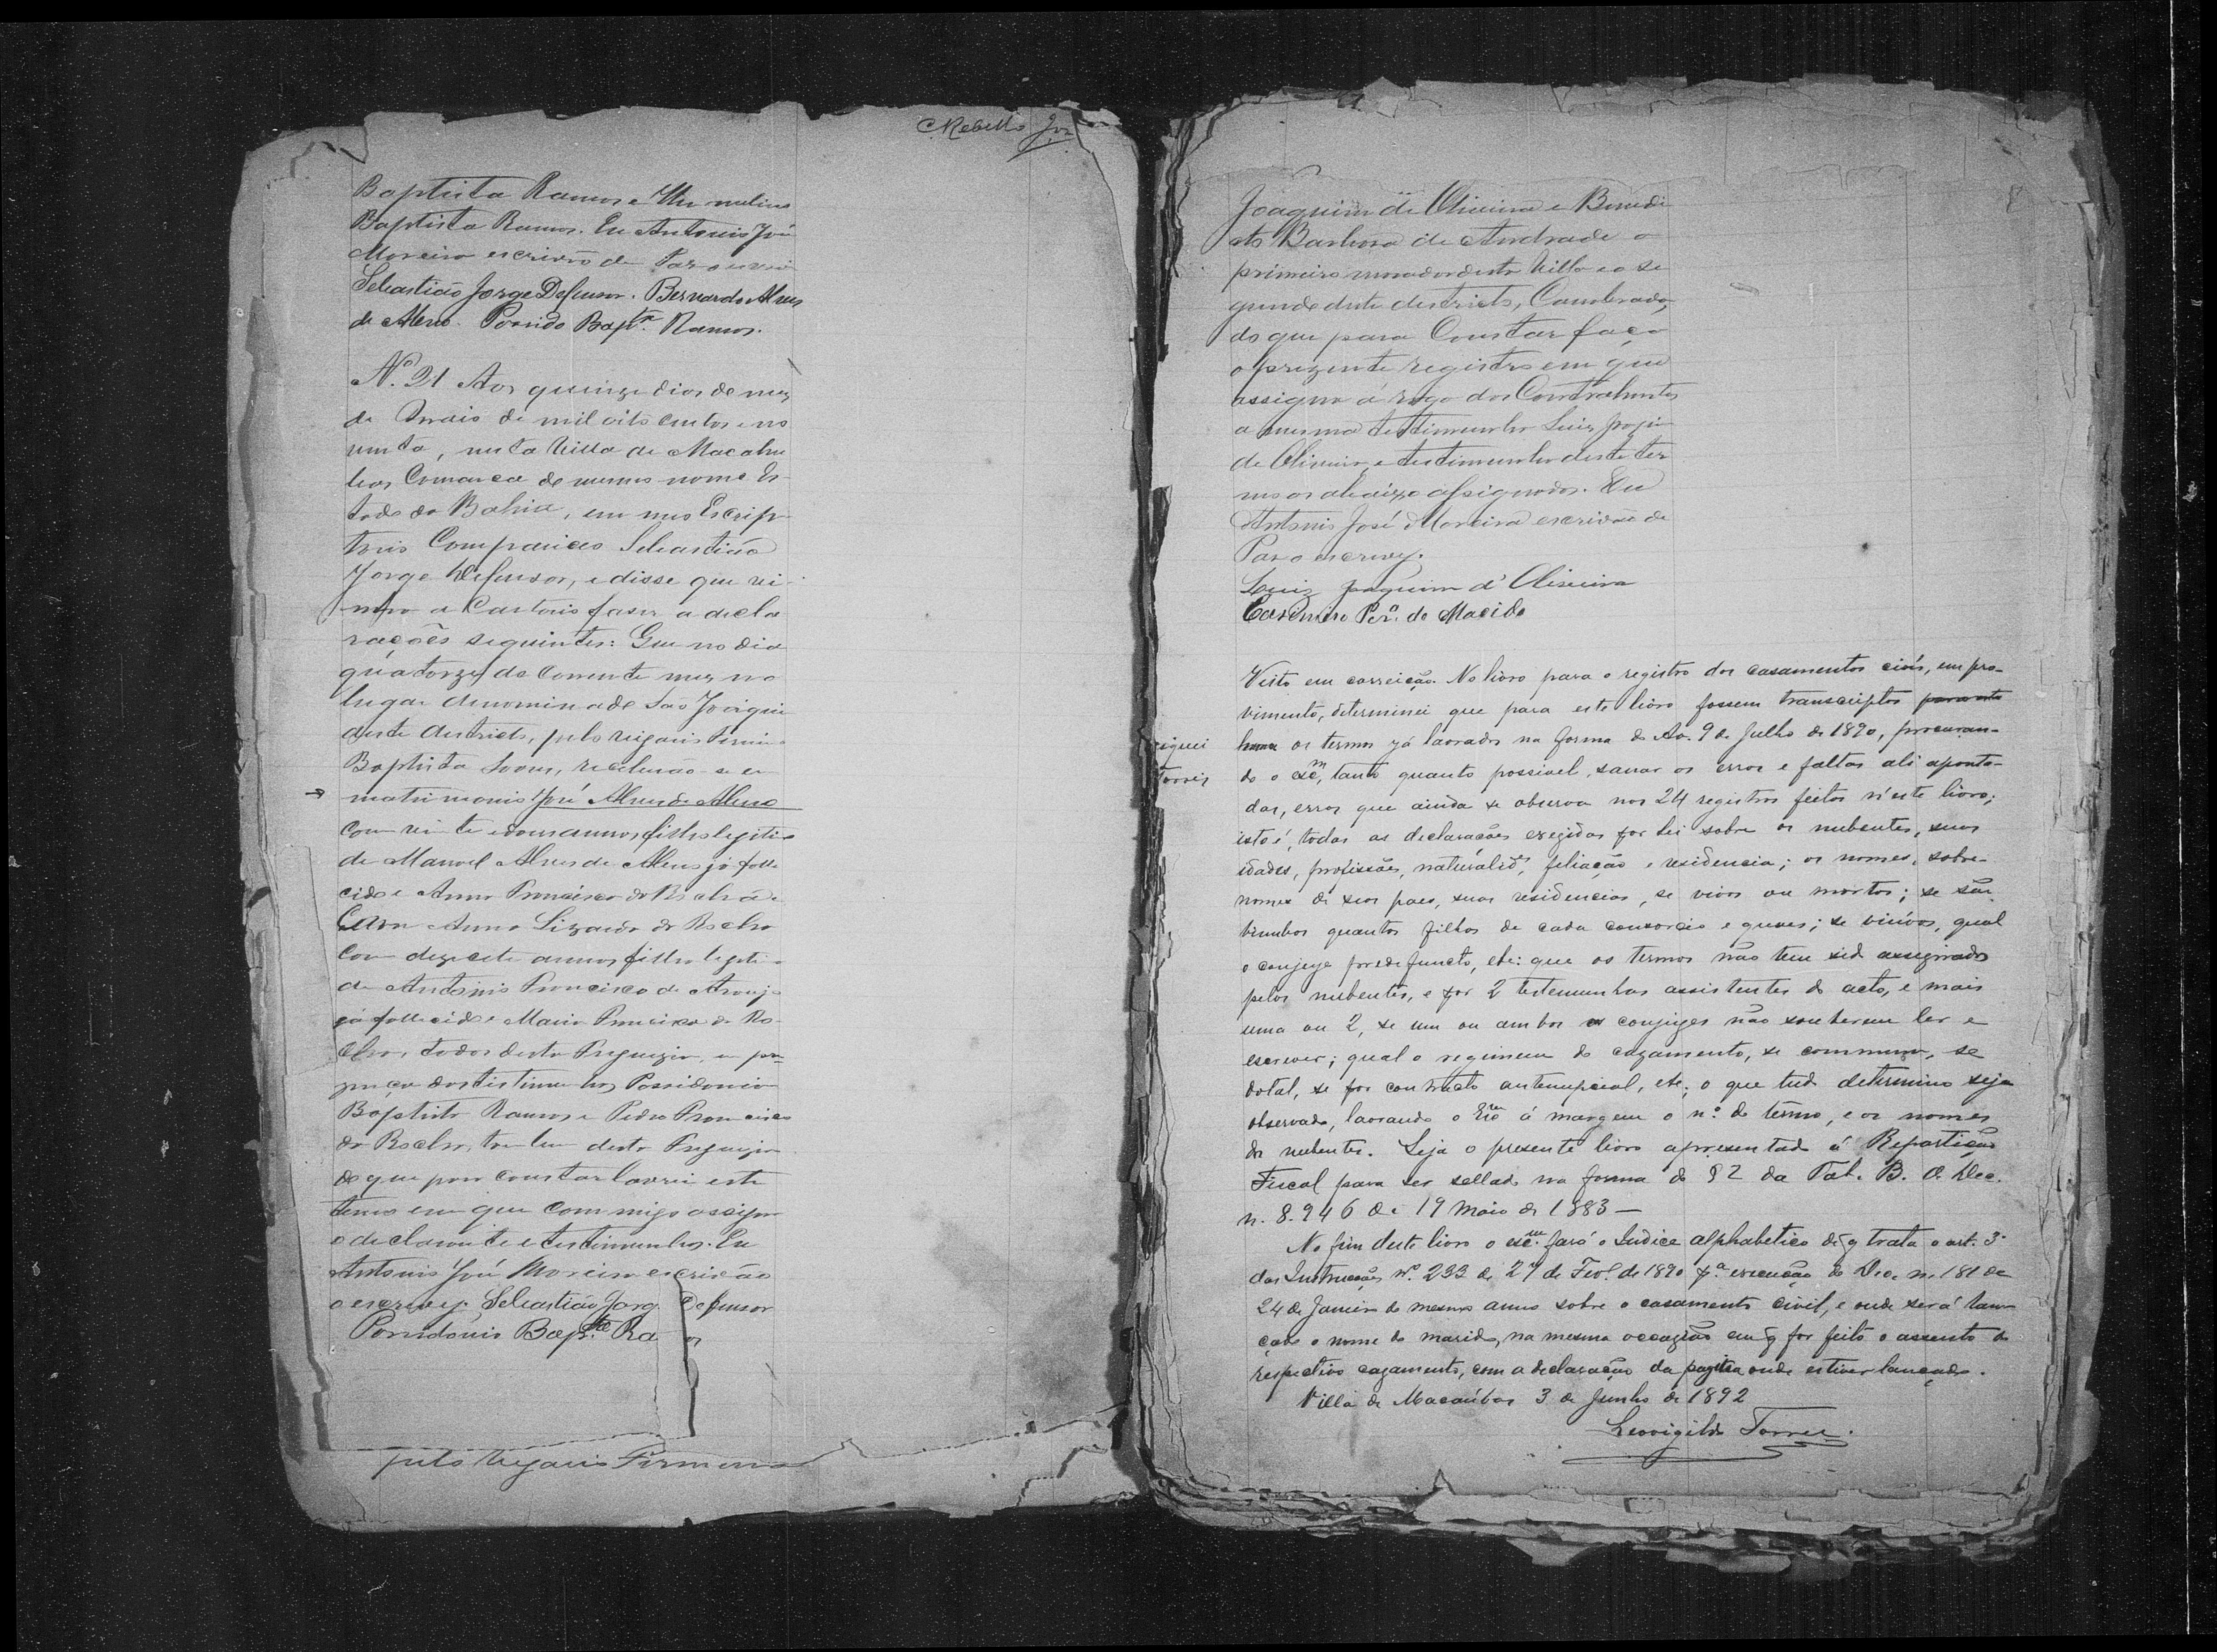 C. Rebello Jor
Baptista Ramos e Hermelino
Baptista Ramos. Eu Antonio José
Moreira escrivão de Paz o escrevi
Sebastião Jorge Defensor. Bernardo Alves
de Aleno. Possido Bapta. Ramos.
Nº. 21 Aos quinze dias do mez
de Maio de mil oito centos e no
venta, nesta Villa de Macahu
bas Comarca do mesmo nome Es-
tado da Bahia, em meo Escrip-
torio Compareceo Sebastião
Jorge Defensor, e disse que vi-
nha a Cartorio faser a decla
rações seguintes: Que no dia
quatorze do corrente mez no
lugar denominado São Joaqui
deste districto, pelo vigario Firmino
Baptista Soares, receberão-se em
matrimonio José Alves de Aleno
com vinte e dous annos, filho legiti-
de Manoel Alves de Aleno já falle
cido e Anna Francisca da Rocha e
Com Anna Lizarda da Rocha
com dezesete annos, filha legiti-
de Antonio Francisco de Araujo
já fallecido e Maria Francisca da Ro-
cha, todos desta Freguezia, em pre-
zença das testimunhas Possidonio
Baptista Ramos e Pedro Francisco
da Rocha, tambem desta Freguezia
do que para constar lavrei este
termo em que commigo assigna
o declarante e testimunhas. Eu
Antonio José Moreira escrivão
o escrevy. Sebastião Jorg Defensor
Possidonio Bapta. Ra os
pelo Vigario Firmino
8
Joaquim de Oliveira e Benedi
cto Barbosa de Andrade o
primeiro morador desta Villa e o se
gundo deste districto, Camberado,
do que para Constar faço
o prezente registro em que
assigna á rogo dos Contrahentes
a mesma testimunha Luiz Joaqui
de Oliveira, e testimunha deste ter
mo os abaixo assignados. Eu
Antonio José Moreira escrivão de
Paz o escrevy.
Luiz Joaquim d'Oliveira
Casimiro Perª. de Macêdo
Visto em correição. No livro para o registro dos casamentos civis, em pro-
vimento, determinei que para este livro fossem transcriptos
os termos já lavrados na forma do Av. 9 de Julho de 1890, procuran-
do o escm, tanto quanto possivel, sanar os erros e faltas ali aponta-
das, erros que ainda se observa nos 24 registros feitos n'este livro;
isto é, todas as declarações exegidas por lei sobre os nubentes, suas
idades, profissões, naturalide, filiação e residencia; os nomes, sobre-
nomes de seos paes, suas residencias, se vivos ou mortos; se são
viuvos quantos filhos de cada consorcio e quaes; se viuvos, qual
o conjuge predefuncto, etc: que os termos não tem sido assignados
pelos nubentes, e por 2 testemunhas assistentes do acto, e mais
uma ou 2, se um ou ambos os conjuges não souberem ler e
escrever; qual o regimem do cazamento, se commum, se
dotal, se por contracto antenupcial, etc; o que tudo determino seja
observado, lavrando o Esc á margem o nº. do termo, e os nomes
dos nubentes. Seja o presente livro apresentado á Repartição
Fiscal para ser sellado na forma do § 2 da Tab. B. do Dec.
n. 8.946 de 19 Maio de 1883 —
No fim deste livro o escm. fará o Indice alphabetico de q trata o art. 3º
das Instrucções Nº. 233 de 27 de Fevo. de 1890 pª. execução do Dec. n. 181 de
24 de Janeiro do mesmo anno sobre o casamento civil, e onde será lan-
çado o nome do marido, na mesma occazião em q for feito o assento do
respectivo cazamento, com a declaração da pagina onde estiver lançado.
Villa de Macaúbas 3 de Junho de 1892
Leovigildo Torres.
Torres